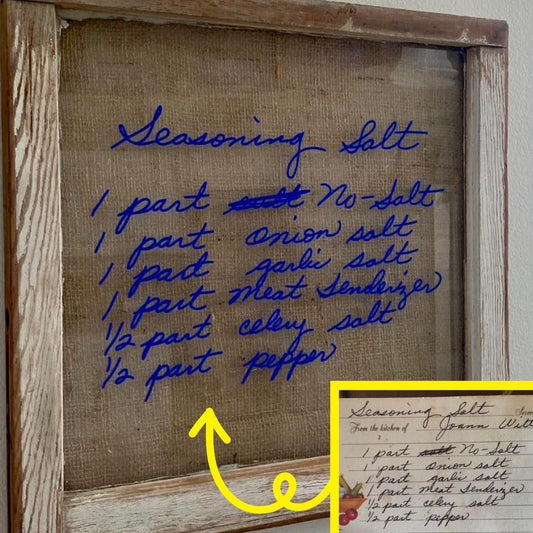 Seasoning Salt
1 part salt No-Salt
1 part onion salt
1 part garlic salt
1 part meat tenderizer
1/2 part celery salt
1/2 part pepper
Seasoning Salt
From the kitchen of Joann Witt
1 part salt No-Salt
1 part onion salt
1 part garlic salt
1 part meat tenderizer
1/2 part celery salt
1/2 part pepper